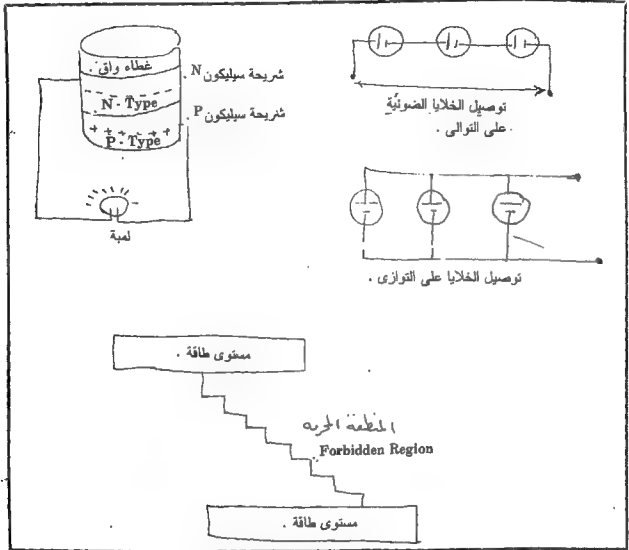 غطاء واق .
N شريحة سيليكون
N - Type
P شريحة سيليكون
P - Type
لمبة
توصيل الخلايا الضوئية
على التوالى .
توصيل الخلايا على التوازى .
مستوى طاقة .
المنطقة
Forbidden Region
مستوى طاقة .